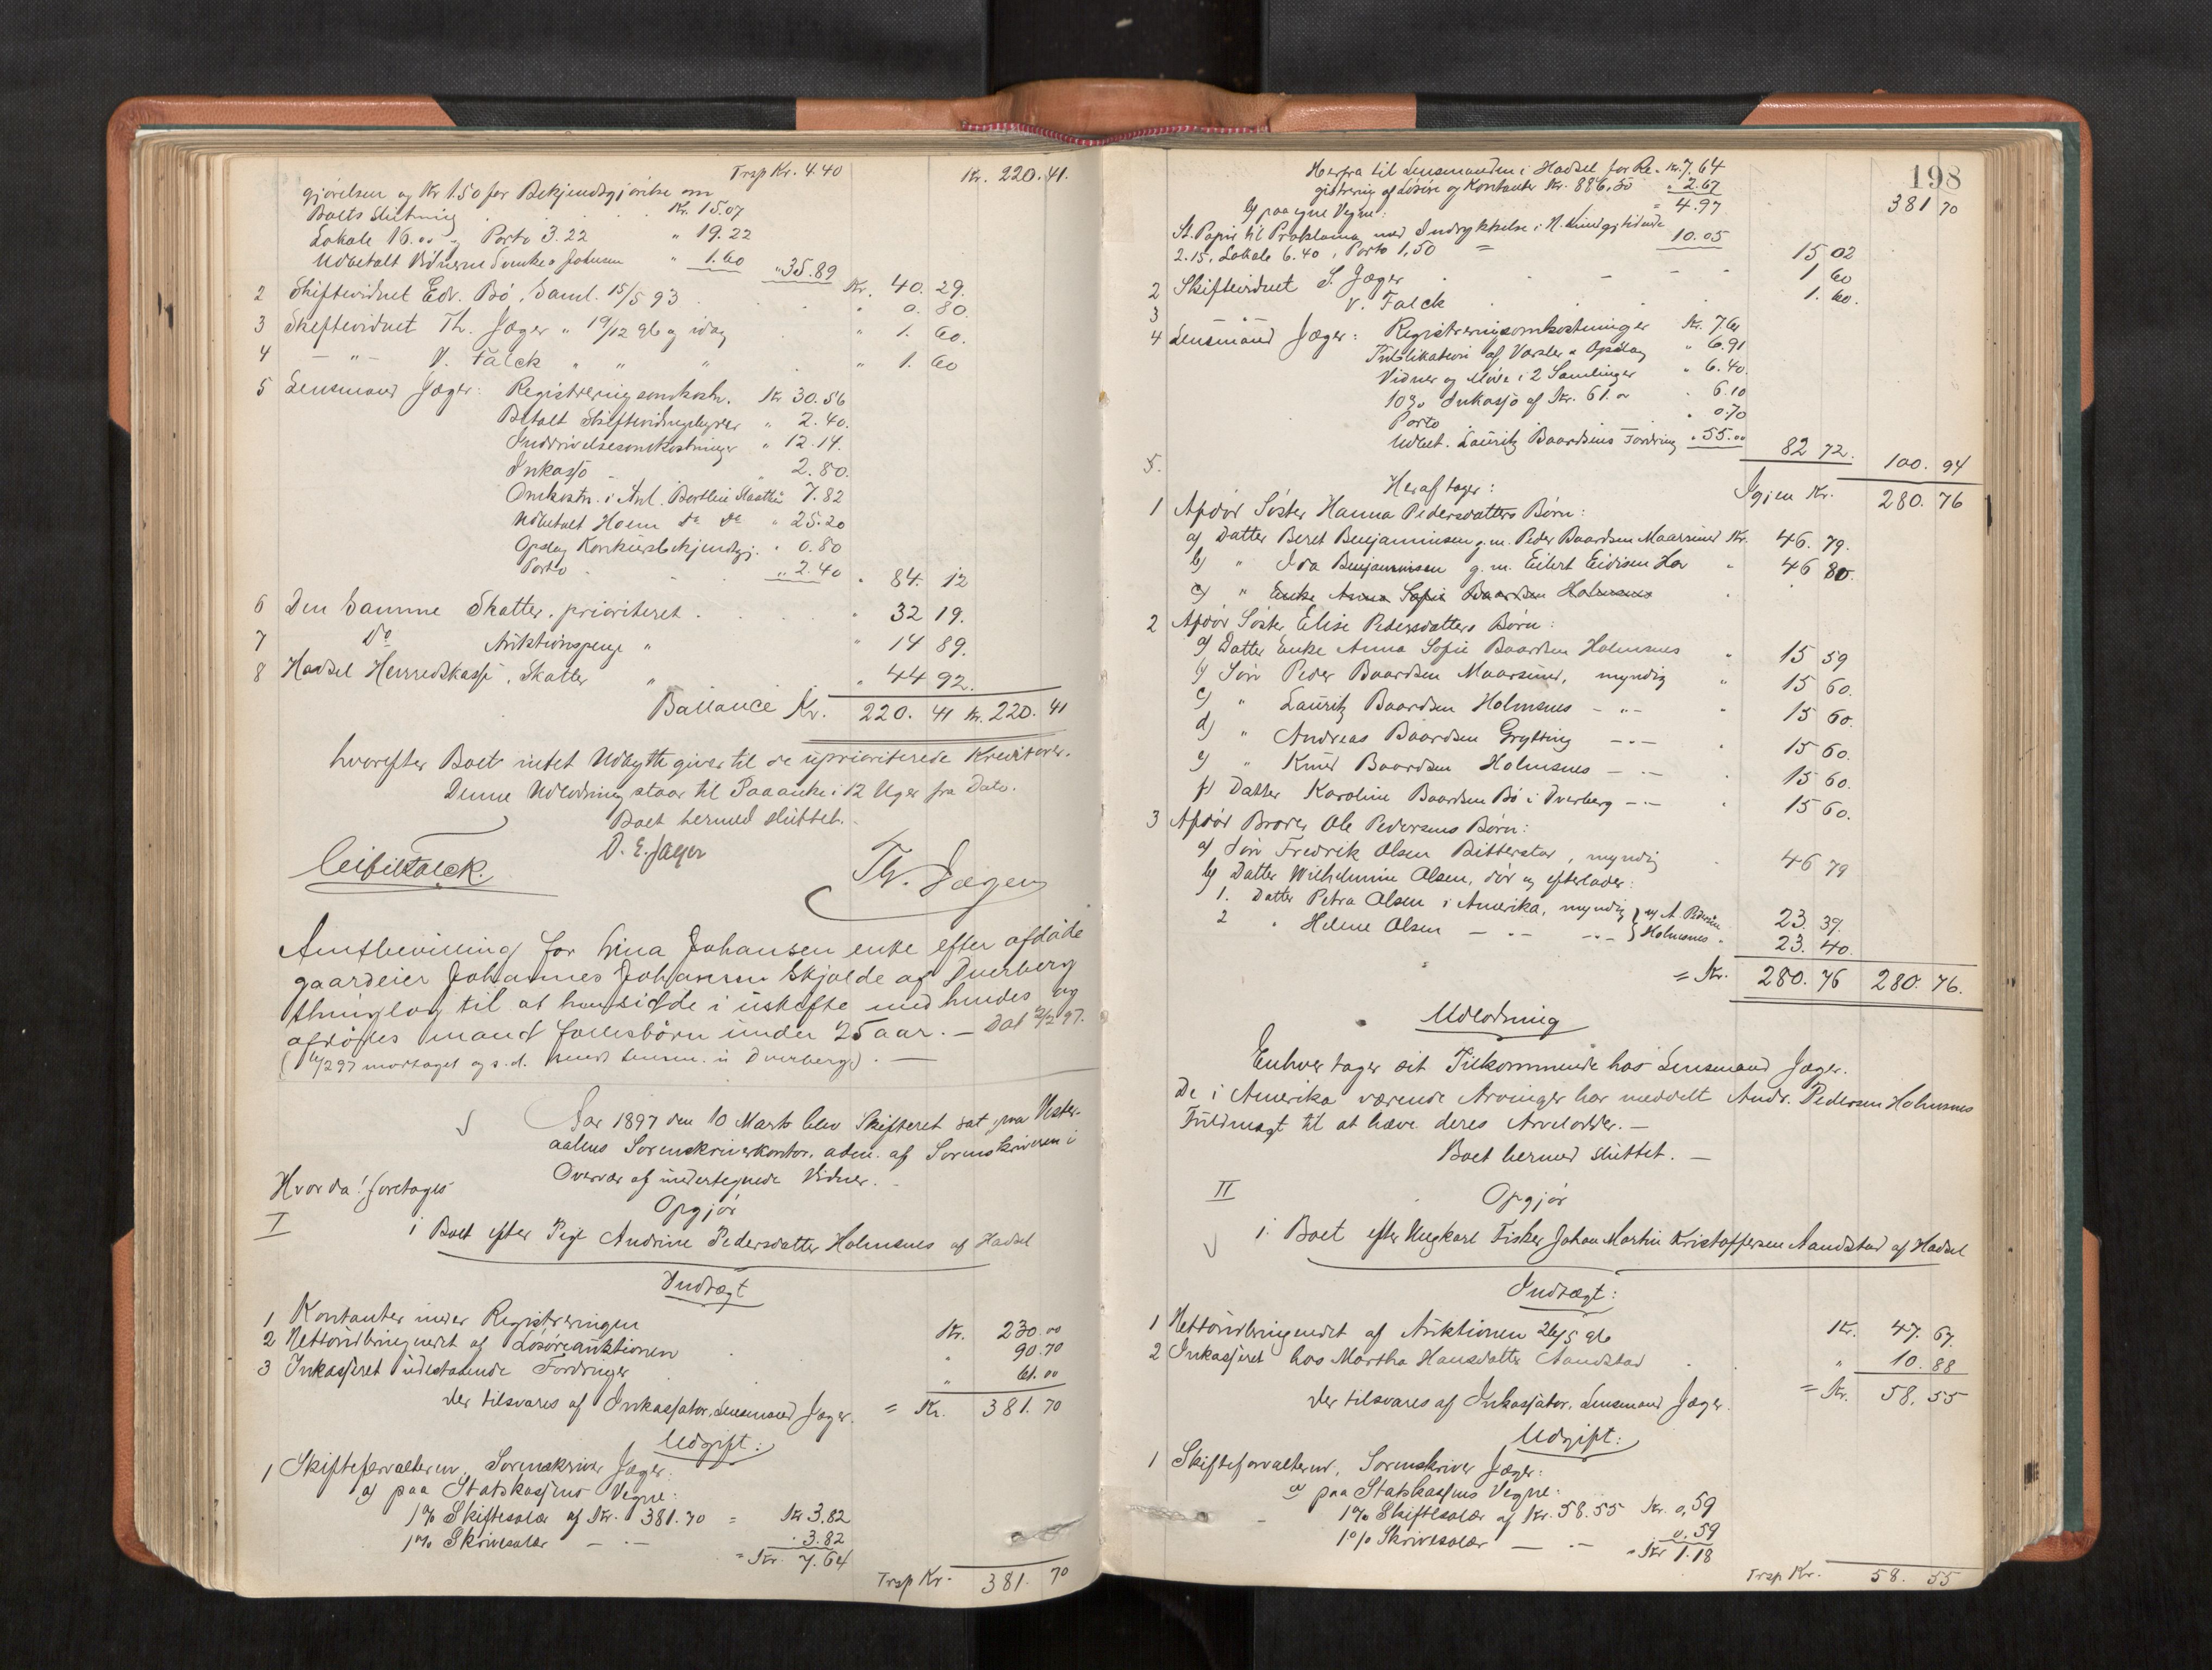 Trsp Kr. 4.40 Kr. 220.41.
gjørelsen og Kr 1.50 for Bekjendtgjørelse om
Boets Slutning Kr. 15.07
Lokale 16.00 og Porto 3.22 " 19.22
Udbetalt Vidnerne Johnsen " 1.60 " 35.89 Kr. 40.29.
2 Skiftevidnet Edv. Bö, Saml. 15/5 93 " 0.80.
3 Skiftevidnet Th. Jæger " 19/12 96 og idag " 1.60.
4 — " — V. Falck " " " " 1.60
5 Lensmand Jæger: Registreringsomkostn. Kr 30.56
Betalt Skiftevidnegebyrer " 2.40.
Inddrivelsesomkostninger " 12.14.
Inkasso " 2.80.
Omkostn. i Anl. 7.82
Udbetalt Hoem do do " 25.20
Opslag Konkursbekjendtgj. " 0.80
Porto " 2.40 " 84.12
6 Den Samme Skatter, prioriteret " 32 19.
7 Do Auktionspenge " " 14 89.
8 Hadsel Herredskasse, Skatter " " 44 92.
Ballance Kr. 220. 41 Kr. 220. 41
hvorefter Boet intet Udbytte giver til de uprioriterede Kreditorer.
Denne Udlodning staar til Paaanke i 12 Uger fra Dato.
Boet hermed sluttet.
D. E. Jager
Falck. Th. Jæger
Amtbevilling for Lina Johansen enke efter afdøde
gaardeier Johannes Johansen Skjolde af Dverberg
thinglag til at hensidde i uskifte med hendes og
afdødes mand fællesbørn under 25 aar. — Dat 2/2 97.
(6/2 97 modtaget og s. d. lensm. i Dverberg). —
Aar 1897 den 10 Marts blev Skifteret sat paa Vester-
aalens Sorenskriverkontor, adm. af Sorenskriveren i
Overvær af undertegnede Vidner. —
Hvor da! foretoges
I Opgjør
i Boet efter Pige Andrine Pedersdatter Holmsnes af Hadsel
Indtægt
1 Kontanter under Registreringen Kr. 230.00
2 Nettoudbringendet af Løsøreauktionen " 90.70
3 Inkasseret udestaaende Fordringer " 61.00
der tilsvares af Inkassator, Lensmand Jæger. = Kr. 381.70
Udgift:
1 Skifteforvalteren, Sorenskriver Jæger:
a) paa Statskassens Vegne:
1% Skiftesalær af Kr. 381.70 = Kr 3.82
1% Skrivesalær — " — " 3.82
= Kr. 7.64
Trsp Kr. 381. 70
198
Herfra til Lensmanden i Hadsel for Re- Kr. 7.64
gistrering af Løsøre og Kontanter Kr. 886,50 " 2.67 381 70
b) paa egne Vegne: = 4.97
St. Papir til Proklama med Indrykkelse i N. Kundgj.tidende
2.15, Lokale 6.40, Porto 1,50 = 10.05 15 02
2 Skiftevidnet S. Jæger 1 60
3 — " — V. Falck 1. 60.
4 Lensmand Jæger: Registreringsomkostninger Kr. 7.61
Publikation af Varsler & Opslag " 6.91
Vidner og Møde i 2 Samlinger " 6.40.
10% Inkasso af Kr. 61.00 " 6.10
Porto " 0.70
Udbet. Lauritz Baardsens Fordring " 55.00 82 72. 100. 94
5. Igjen Kr. 280. 76
Heraf tager:
1 Afdød Søster Hanna Pedersdatters Børn:
a) Datter Beret Benjaminsen g. m. Peder Baardsen Maarsund Kr. 46. 79.
b) " Ida Benjaminsen g. m. Eilert Eidisen Hov " 46 80.
c) " Enke Anna Sofie Baardsen Holmsnes "
2 Afdød Søster Elise Pedersdatters Børn:
a) Datter Enke Anna Sofie Baardsen Holmsnes " 15 59
b) Søn Peder Baardsen Maarsund, myndig " 15 60.
c) " Lauritz Baardsen Holmsnes — " — " 15 60.
d) " Andreas Baardsen Grytting — " — " 15 60.
e) " Knud Baardsen Holmsnes — " — " 15 60.
f) Datter Karoline Baardsen Bö i Dverberg — " — " 15 60.
3 Afdød Broder Ole Pedersens Børn:
a) Søn Fredrik Olsen Bitterstad, myndig " 46 79
b) Datter Wilhelmine Olsen, død og efterlader:
1. Datter Petra Olsen i Amerika, myndig } v/ A. Pedersen 23. 39.
2 " Helene Olsen — " — — " — } Holmsnes " 23. 40.
= Kr. 280. 76 280. 76.
Udlodning
Enhver tager sit Tilkommende hos Lensmand Jæger.
De i Amerika værende Arvinger har meddelt Andr. Pedersen Holmsnes
Fuldmagt til at hæve deres Arvelodder. —
Boet hermed sluttet. —
II Opgjør
i Boet efter Ungkarl Fisker Johan Martin Kristoffersen Aandstad af Hadsel
Indtægt:
1 Nettoudbringendet af Auktionen 26/5 96 Kr. 47. 67.
2 Inkasseret hos Martha Hansdatter Aandstad " 10. 88
der tilsvares af Inkassator, Lensmand Jæger. = Kr. 58. 55
Udgift:
1 Skifteforvalteren, Sorenskriver Jæger:
a) paa Statskassens Vegne:
1% Skiftesalær af Kr. 58.55 Kr. 0,59
1% Skrivesalær — " — 0.59
= Kr 1.18
Trsp Kr. 58. 55